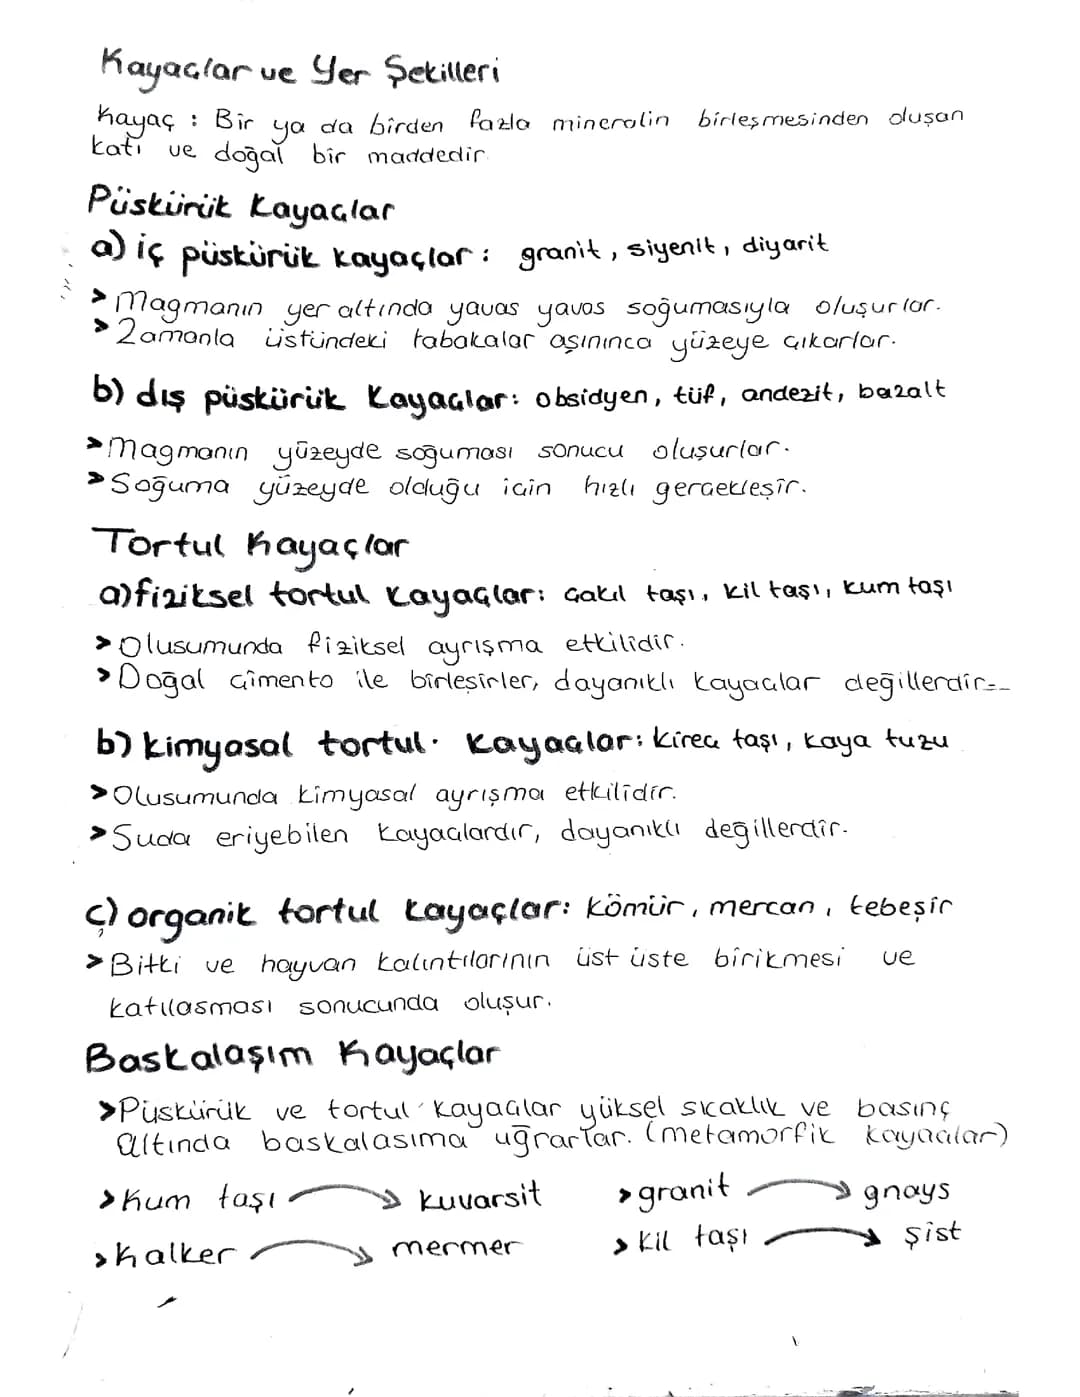 Kayaçlar ve Yer Şekilleri
Kayaç : Bir ya da birden fazla mineralin birleşmesinden oluşan
katı ve doğal bir maddedir.
Püskürük Kayaçlar
a) iç püskürük kayaçlar : granit, siyenit, diyarit
> Magmanın yer altında yavas yavos soğumasıyla oluşurlar.
> Zamanla üstündeki tabakalar aşınınca yüzeye çıkarlar.
b) dış püskürük kayaçlar: obsidyen, tüf, andezit, bazalt
> Magmanın yüzeyde soğuması sonucu oluşurlar.
> Soğuma yüzeyde olduğu için hızlı gerçekleşir.
Tortul Kayaçlar
a) fiziksel tortul kayaçlar: çakıl taşı, kil taşı, kum taşı
> Olusumunda fiziksel ayrışma etkilidir.
> Doğal çimento ile birleşirler, dayanıklı kayaçlar değillerdir.
b) kimyasal tortul kayaçlar: kireç taşı, kaya tuzu
> Olusumunda kimyasal ayrışma etkilidir.
> Suda eriyebilen kayaçlardır, dayanıklı değillerdir.
ç) organik tortul kayaçlar: kömür, mercan, tebeşir
> Bitki ve hayvan kalıntılarının üst üste birikmesi ve
katılasması sonucunda oluşur.
Baskalaşım Kayaçlar
> Püskürük ve tortul kayaçlar yüksel sıcaklık ve basınç
altında baskalasıma uğrarlar. (metamorfik kayaçlar)
> Kum taşı → kuvarsit > granit → gnays
> Kalker → mermer > kil taşı → şist